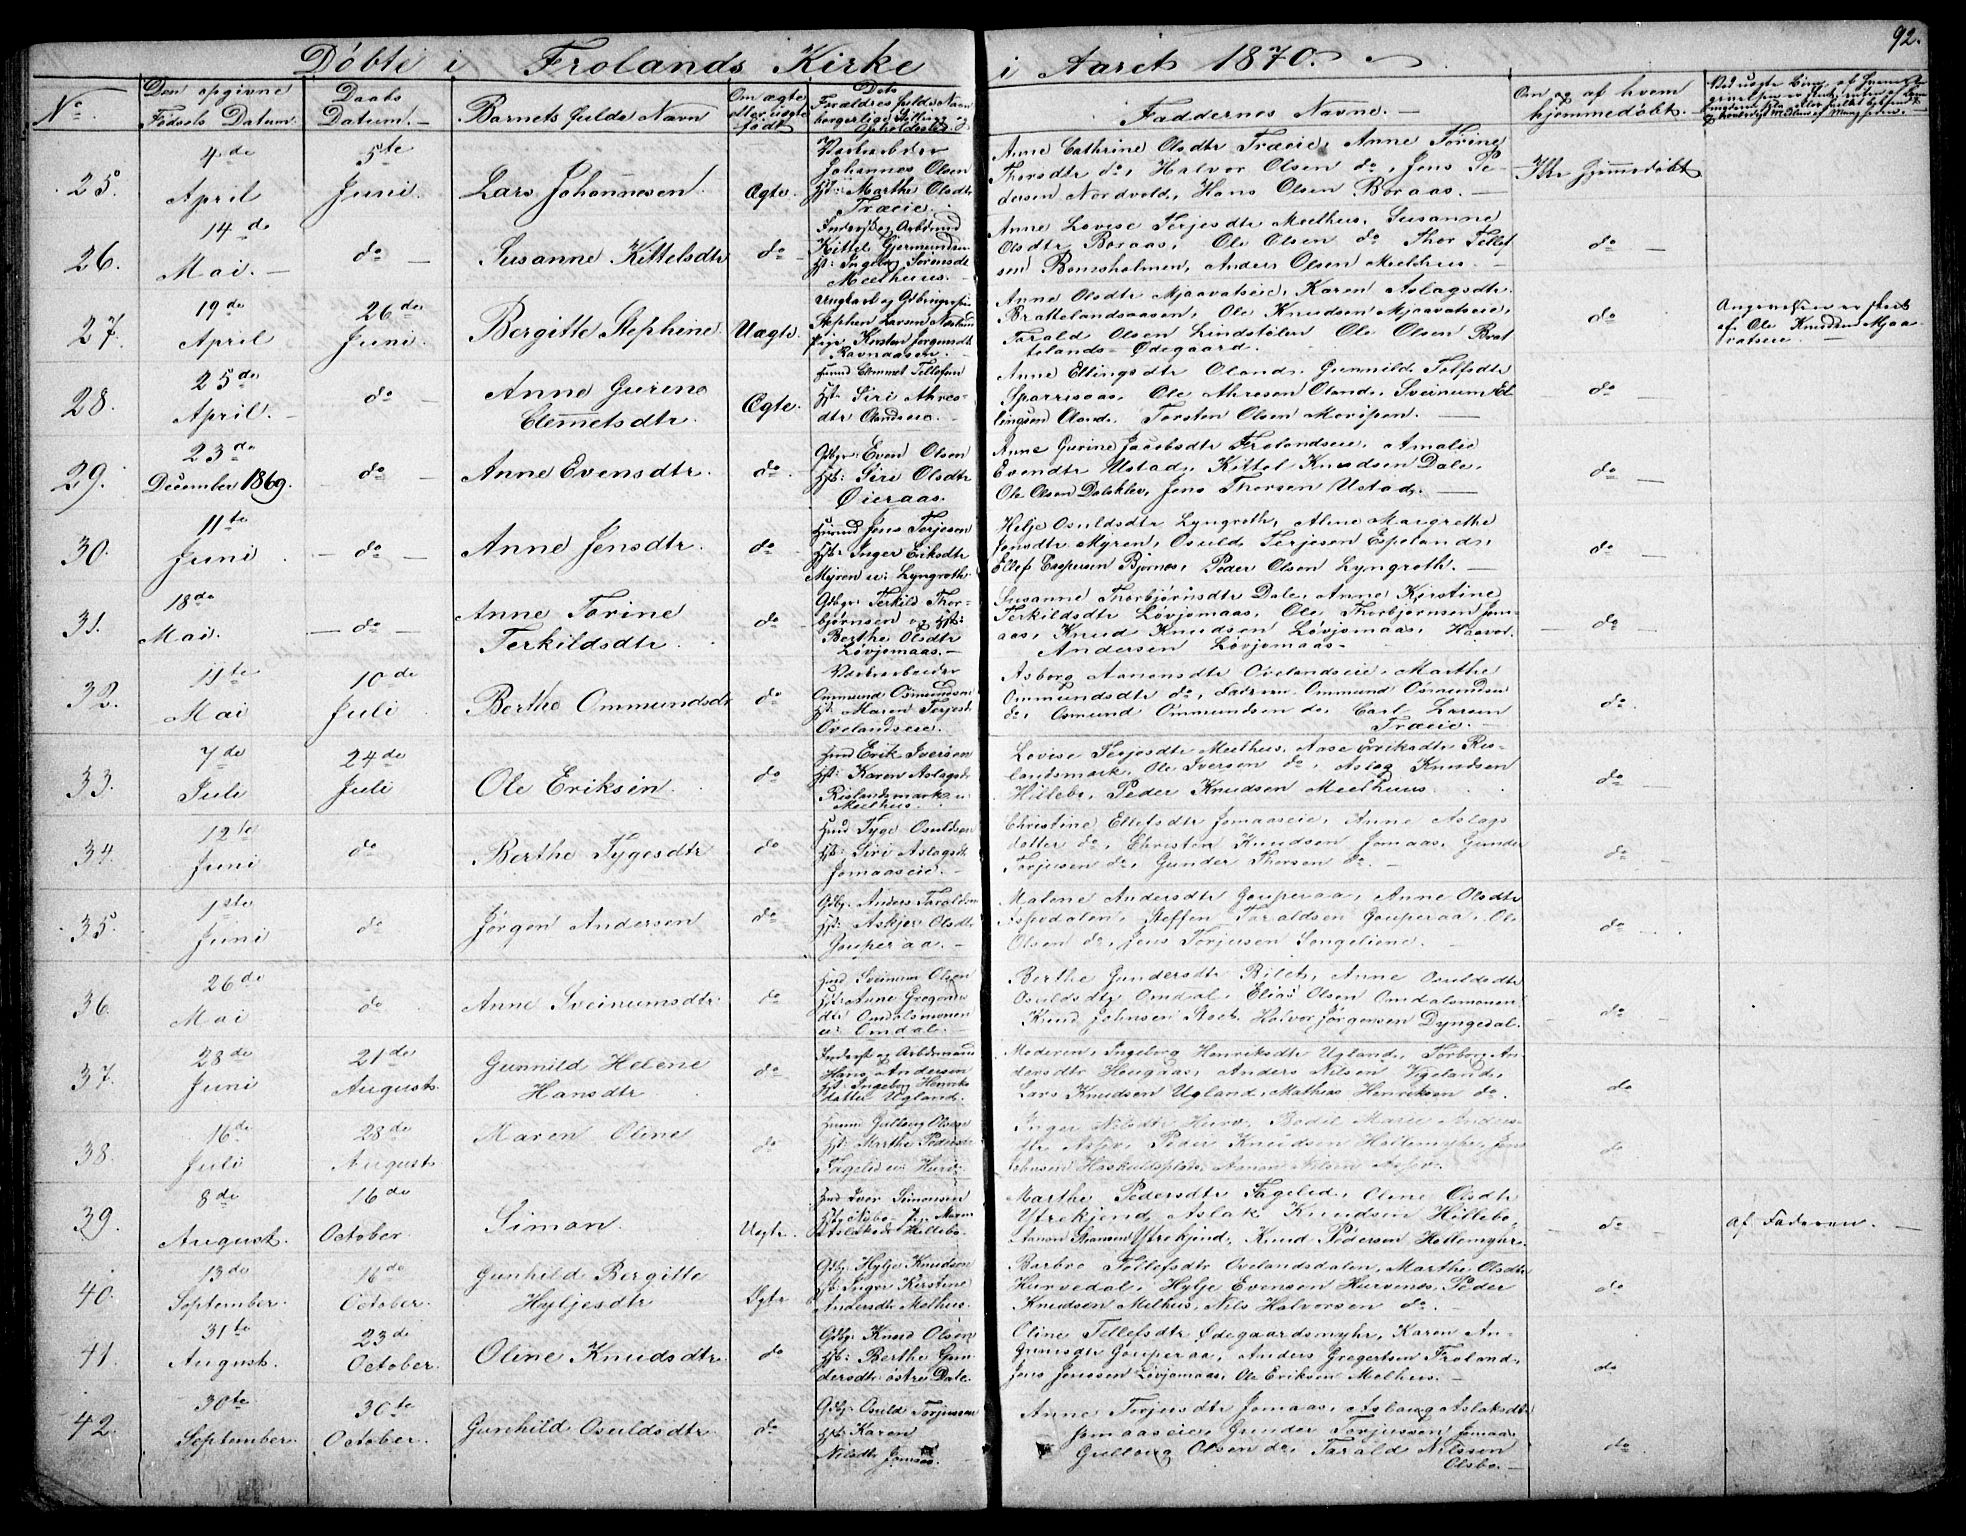 92.
Døbte i Frolands Kirke i Aaret 1870.
No
Den opgivne Fødsels Datum.
Daabs Datum.
Barnets fulde Navn
Om ægte eller uægte født
Dets Forældres fulde Navn borgerlige Stilling og Opholdsted.
Faddernes Navne.
Om og af hvem hjemmedøbt.
25.
4de April
5te Juni
Lars Johannesen
Ægte.
Johannes Olsen
Hst: Marthe Olsdtr
Træeie.
Anne Cathrine Olsdtr Træeie, Anne Torine
Thorsdtr do, Halvor Olsen do, Jens Pe-
dersen Nordvold, Hans Olsen Boraas.
Ikke hjemmedøbt
26.
14de Mai.
do
Susanne Kittelsdtr
do
Kittel Gjermundsen
Hst: Ingeborg Sørensdtr
Meelhuus.
Anne Lovise Terjesdtr Meelhus, Susanne
Olsdtr Boraas, Ole Olsen do Thor Tellef
sen Bomsholmen, Anders Olsen Meelhus.
do
27.
19de April
26de Juni
Bergitte Stephine
Uægte
Stephen Larsen
Pige Kirsten Jørgensdtr
Ravnaasen
Anne Olsdtr Mjaavatseie, Karen Aslagsdtr
Brattelandsaasen, Ole Knudsen Mjaavatseie,
Tarald Olsen Lindstølen Ole Olsen Brat
telands-Ødegaard.
do
Angivelsen er skeet
af Ole Knudsen Mjaa
vatseie.
28.
25de April.
do
Anne Gurine
Clemetsdtr.
Ægte.
Clemmet Tellefsen
Hst: Siri Ahres-
dtr Olandseie
Anne Ellingsdtr Oland, Gunnild Tolfsdtr
Sparrisaas, Ole Ahresen Oland, Sveinum El
lingsen Oland, Torsten Olsen Moripen.
do
29.
23de December 1869.
do
Anne Evensdtr.
do.
Gdbgr. Even Olsen
Hst: Siri Olsdtr
Øieraas.
Anne Gurine Jacobsdtr Frolandseie, Amalie
Evendtr Ustad, Kittel Knudsen Dale,
Ole Olsen Daleklev, Jens Thorsen Ustad.
do
30.
11te Juni
do
Anne Jensdtr.
do.
Jens Terjesen
Hst: Inger Eriksdtr
Myren u: Lyngroth.
Helje Osuldsdtr Lyngroth, Aline Margrethe
Jensdtr Myren, Osuld Terjesen Espeland,
Ellef Caspersen Bjornes, Peder Olsen Lyngroth.
do
31.
18de Mai.
do
Anne Torine
Terkildsdtr.
do
Gdbgr. Terkild Thor-
bjørnsen og Hst:
Berthe Olsdtr
Løvjomaas.
Susanne Thorbjørnsdtr Dale, Anne Kirstine
Terkildsdtr Løvjomaas, Ole Thorbjørnsen Jom-
aas, Knud Knudsen Løvjomaas, Haavor
Andersen Løvjomaas
do
32.
11te Mai
10de Juli
Berthe Ommundsdtr
do
Ommund Osmundsen
Hst: Maren Terjesd.
Ovelandseie.
Asborg Aanonsdtr Ovelandseie, Marthe
Ommundsdtr do, Faderen Ommund Osmundsen
do, Osmund Ommundsen do, Carl Larsen
Træeie.
do.
33.
7de Juli
24de Juli
Ole Eriksen
do
Erik Iversen
Hst: Karen Aslagsdr
Rislandsmark u:
Meelhus.
Lovise Terjesdtr Meelhus, Aase Eriksdtr Ris-
landsmark, Ole Iversen do, Aslag Knudsen
Hillebo, Peder Knudsen Meelhuus.
do
34.
12te Juni
do
Berthe Tygesdtr
do
Tyge Osuldsen
Hst: Siri Aslagsdr
Jomaaseie.
Christine Ellefsdtr Jomaaseie, Anne Aslags
datter do, Christen Knudsen Jomaas, Gunder
Torjusen do, Gunder Thorsen do.
do
35.
1ste Juni
do
Jørgen Andersen
do
Gdbgr. Anders Taraldsen
Hst: Askjer Olsdtr
Gouperaa.
Malene Andersdtr Gouperaa, Anne Olsdtr
Aspedalen, Steffen Taraldsen Gouperaa, Ole
Olsen do, Jens Torjusen Songeliene.
do
36.
26de Mai
do
Anne Sveinumsdtr
do
Sveinum Olsen
Hst: Anne Gregers
dtr Omdalsmonen
u: Omdal.
Berthe Gundersdtr Bilet, Anne Osuldsdtr
Osuldsdtr Omdal, Elias Olsen Omdalsmonen
Knud Johnsen Stoet, Halvor Jørgensen Dyngedal.
do
37.
28de Juni
21de Augusts
Gunnild Helene
Hansdtr
do
Hans Andersen
Hst: Ingeborg Henriks
datter Ugland.
Moderen, Ingeborg Henriksdtr Ugland, Torborg An
dersdtr Hougaas, Anders Nilsen Vigeland,
Lars Knudsen Ugland, Mathias Henriksen do.
do
38.
16de Juli
28de August
Karen Oline
do
Gulloug Olsen
Hst: Marthe Pedersdtr
Fagelid u: Hurv
Inger Nilsdtr Hurv, Bodil Marie Anders-
dtr Aspev, Peder Knudsen Hattemyhr, Jens
do
39.
8de August.
16de October.
Simon.
Uægte.
Iver Simonsen
Aslaksdr Hillebo.
Marthe Pedersdtr Fagelid, Oline Olsdtr
Ytrekjend, Aslak Knudsen Hillebo,
Aanon Ytrekjend, Knud Pedersen Hattemyhr
do
af Faderen.
40.
13de September.
16de October.
Gunhild Bergitte
Hyljesdtr
Ægte
Gdbgr. Hylje Knudsen
Hst: Inger Kirstine
Andersdtr Melhus.
Barbro Tellefsdtr Ovelandsdalen, Marthe Olsdtr
Hurvedal, Hylje Evensen Hurvenes, Peder
Knudsen Melhus, Nils Halvorsen do.
do
41.
31te August.
23de October.
Oline Knudsdtr
do
Gdbgr: Knud Olsen
Hst: Berthe Gun
dersdtr østre Dale.
Oline Tellefsdtr Ødegaardsmyhr, Karen An-
Gouperaa, Anders Gregertsen Froland,
Jens Jenssen Løvjomaas, Ole Eriksen Melhus.
do
42.
30te September.
30te October.
Gunhild Osuldsdtr
do
Gdbgr. Osuld Torjussen
Hst: Karen
Nilsdtr Jomaas.
Anne Torjusdtr Jomaas, Aslaug Aslaksdtr
Jomaaseie, Gunder Torjussen Jomaas
Gulloug Olsen do, Tarald Nilssen
Olsbo.
do